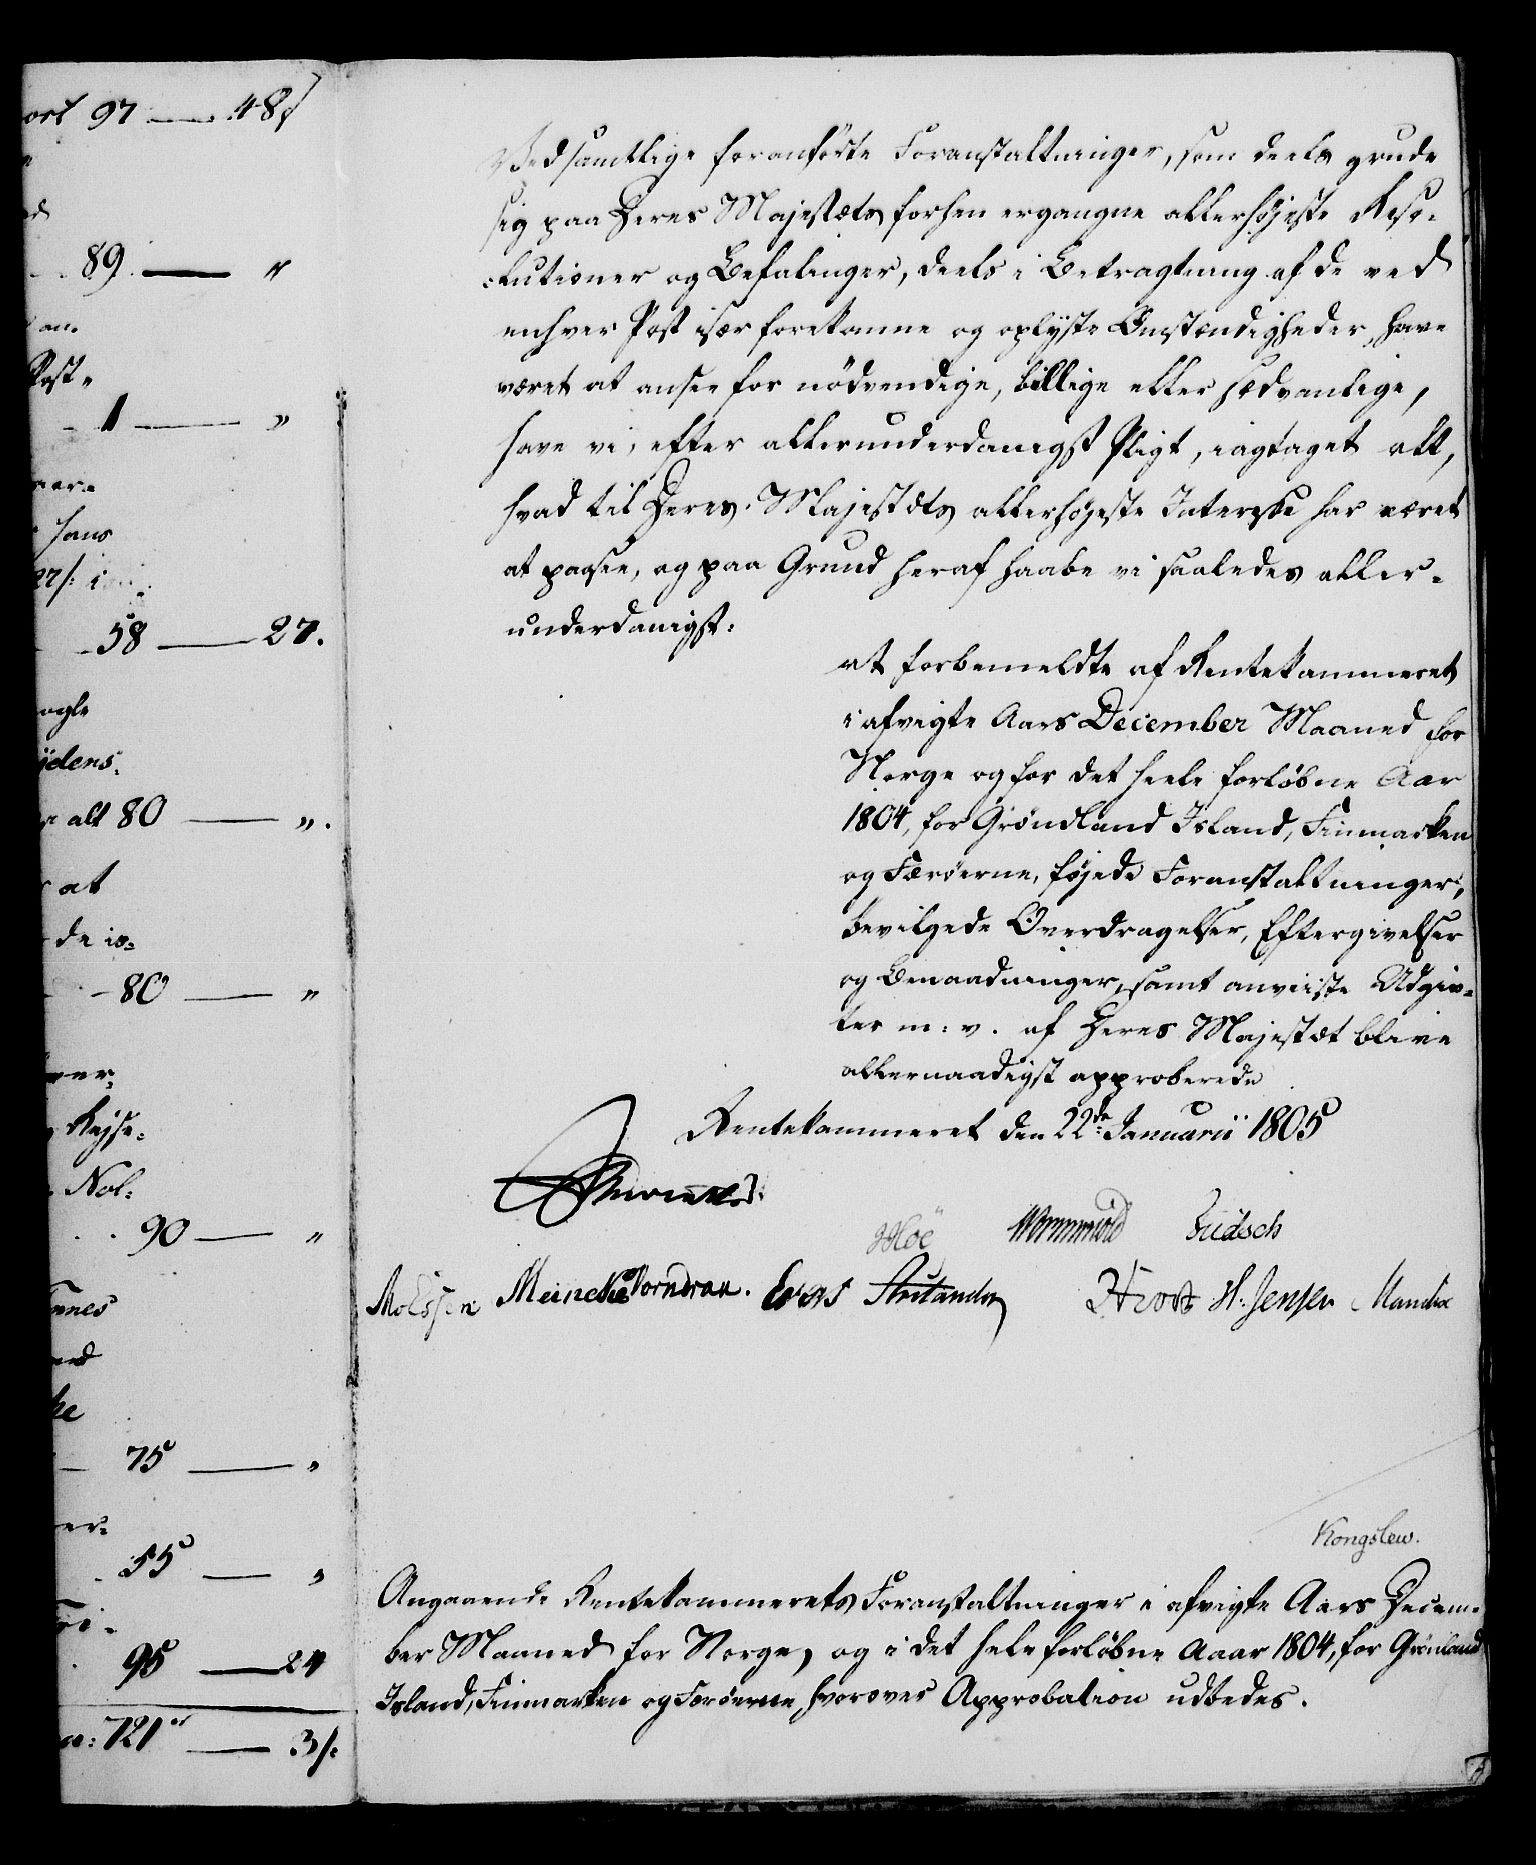 ort 97 — 48ſ
89. — "
an.
Post-
- 1 — "
hans
27ſ: i
- 58 — 27.
ogle
ydens.
alt 80 — ".
at
de is-
- 80 — "
ver,
Rejse-
Nol:
90 — "
nnes
75 — "
er-
55 — "
95 — 24
721 — 3ſ:
Ved samtlige foranførte Foranstaltninger, som deels grunde
sig paa Deres Majestæts forhen ergangne allerhøjeste Reso-
lutioner og Befalinger, deels i Betragtning af de ved
enhver Post især forekomne og oplyste Omstændigheder, have
været at ansee for nödvendige, billige eller sædvanlige,
have vi, efter allerunderdanigst Pligt, iagtaget alt,
hvad til Deres Majestæts allerhøjeste Interesse har været
at paasee, og paa Grund heraf haabe vi saaledes aller-
underdanigst:
at forbemeldte af Rentekammeret
i afvigte Aars December Maaned for
Norge og for det heele forløbne Aar
1804, for Gröndland Island, Finmarken
og Færöerne, föjede Foranstaltninger,
bevilgede Overdragelser, Eftergivelser
og Benaadninger, samt anviiste Udgiv-
ter m: v. af Deres Majestæt blive
allernaadigst approberede
Rentekammeret den 22de Januarii 1805
Hoë Wormskiold Lüdsch
Moessen Meincke Vorndran. Evers Frost H. Jensen Mandix
Kongslew.
Angaaende Rentekammerets Foranstaltninger i afvigte Aars Decem-
ber Maaned for Norge, og i det hele forløbne Aaar 1804, for Grönland
Island, Finmarken og Færöerne, hvorover Approbation udbedes.